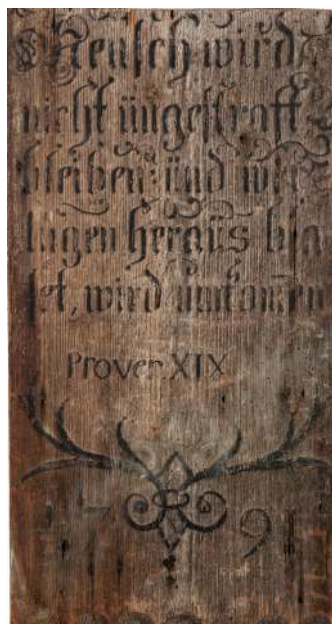 Mensch wird
nicht ungestrafft
bleiben: und wer
lugen heraus bla
set, wird umkomen
Prover: XIX